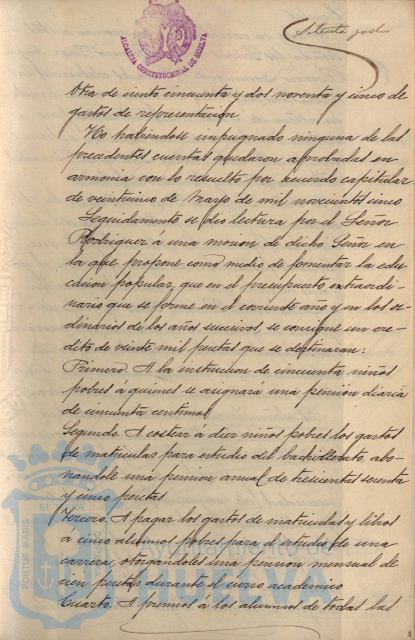 Setenta y ocho
ALCALDIA CONSTITUCIONAL DE HUELVA
Otra de ciento cincuenta y dos noventa y cinco de
gastos de representación
No habiendose impugnado ninguna de las
precedentes cuentas quedaron aprobadas en
armonia con lo resuelto por acuerdo capitular
de veintiuno de Mayo de mil novecientos cinco
Seguidamente se dio lectura por el Señor
Rodriguez á una mocion de dicho Señor en
la que propone como medio de fomentar la edu
cacion popular, que en el presupuesto extraordi-
nario que se forme en el corriente año y en los or-
dinarios de los años sucesivos se consigne un cre
dito de veinte mil pesetas que se destinaran:
Primero. A la instruccion de cincuenta niños
pobres á quienes se asignará una pension diaria
de cincuenta centimos
Segundo. A costear á diez niños pobres los gastos
de matriculas para estudio del bachillerato, abo-
nandole una pension anual de trescientas sesenta
y cinco pesetas
Tercero. A pagar los gastos de matriculas y libros
a cinco alumnos pobres para el estudio de una
carrera, otorgandoles una pension mensual de
cien pesetas durante el curso academico
Cuarto. A premios á los alumnos de todas las
PORTUS MARIS ET
Ayuntamiento de
HUELVA